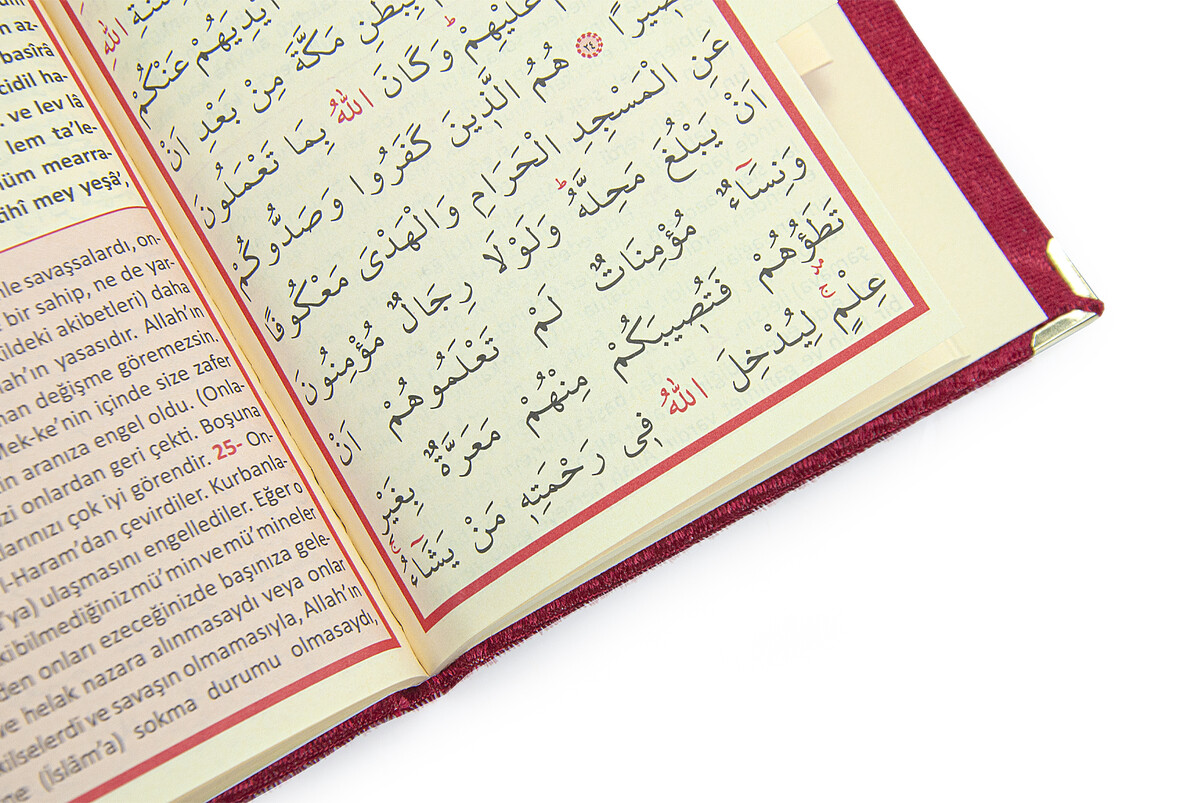 az-
basîrâ
cidil ha-
. ve lev lâ
lem ta'le-
mearra-
mey yeşâ',
savaşsalardı, on-
bir sahip, ne de yar-
akibetleri) daha
yasasıdır. Allah'ın
değişme göremezsin.
Mek-ke'nin içinde size zafer
aranıza engel oldu. (Onla-
onlardan geri çekti. Boşuna
çok iyi görendir. 25- On-
l-Haram'dan çevirdiler. Kurbanla-
ulaşmasını engellediler. Eğer o
ki bilmediğiniz mü'min ve mü'mineler
den onları ezeceğinizde başınıza gele-
ve helak nazara alınmasaydı veya onlar
kilselerdi ve savaşın olmamasıyla, Allah'ın
ne (İslâm'a) sokma durumu olmasaydı,
اللهِ
اَيْدِيَهُمْ عَنْكُمْ
بِبَطْنِ مَكَّةَ مِنْ بَعْدِ اَنْ
عَلَيْهِمْ وَكَانَ اللهُ بِمَا تَعْمَلُونَ
بَصِيرًا ٢٤ هُمُ الَّذِينَ كَفَرُوا وَصَدُّوكُمْ
عَنِ الْمَسْجِدِ الْحَرَامِ وَالْهَدْىَ مَعْكُوفًا
اَنْ يَبْلُغَ مَحِلَّهُ وَلَوْلَا رِجَالٌ مُؤْمِنُونَ
وَنِسَٓاءٌ مُؤْمِنَاتٌ لَمْ تَعْلَمُوهُمْ اَنْ
تَطَؤُهُمْ فَتُصِيبَكُمْ مِنْهُمْ مَعَرَّةٌ بِغَيْرِ
عِلْمٍ لِيُدْخِلَ اللهُ فِى رَحْمَتِهِ مَنْ يَشَٓاءُ